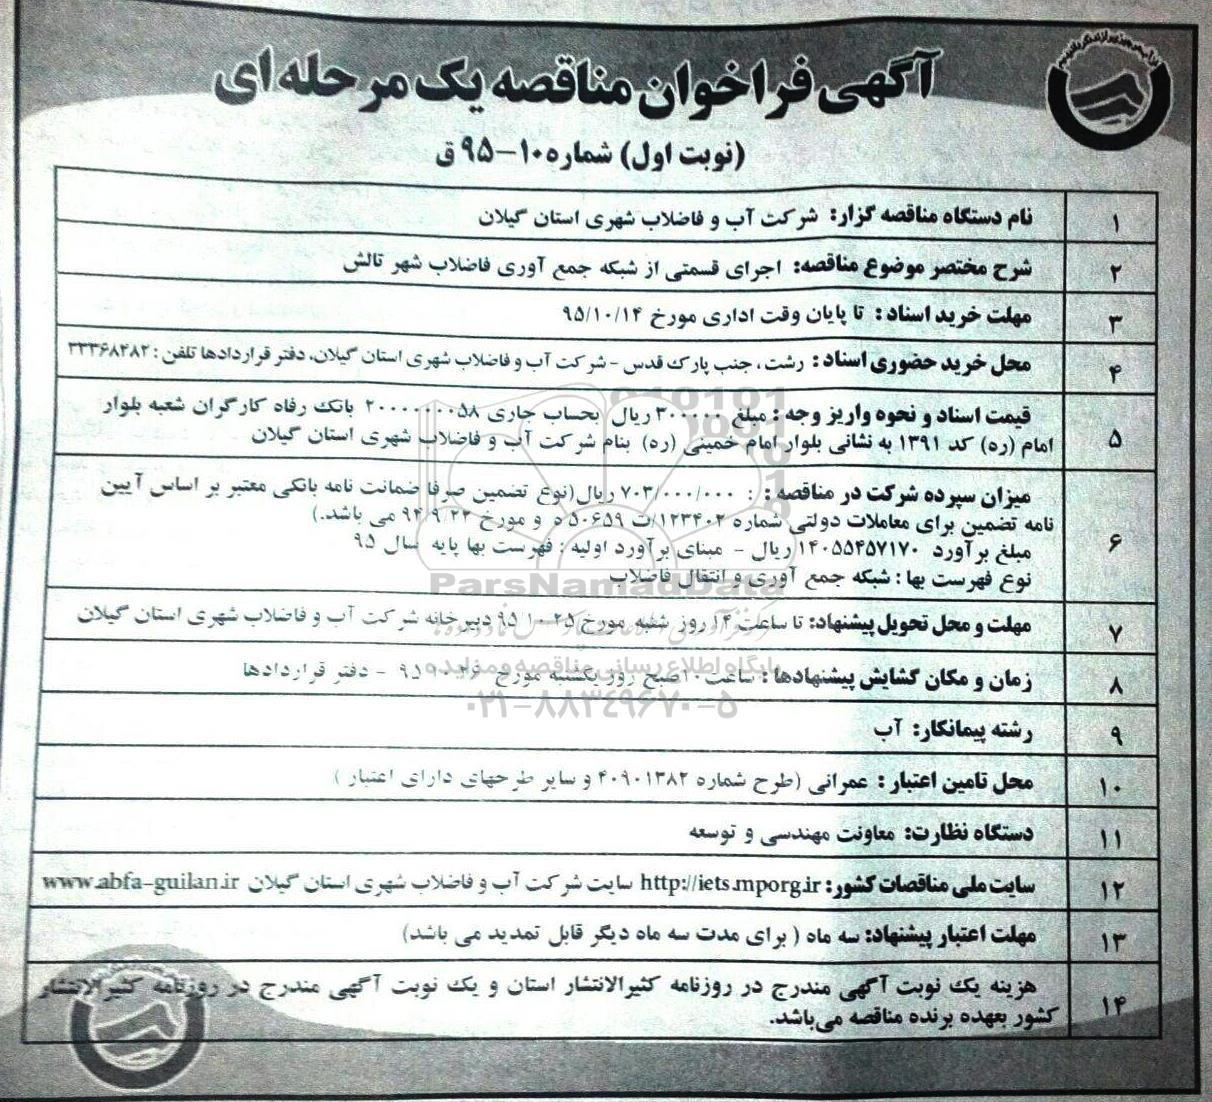 آگهی فراخوان مناقصه یک مرحله ای
(نوبت اول) شماره ۱۰-۹۵ ق
۱ نام دستگاه مناقصه گزار: شرکت آب و فاضلاب شهری استان گیلان
۲ شرح مختصر موضوع مناقصه: اجرای قسمتی از شبکه جمع آوری فاضلاب شهر تالش
۳ مهلت خرید اسناد: تا پایان وقت اداری مورخ ۹۵/۱۰/۱۴
۴ محل خرید حضوری اسناد: رشت، جنب پارک قدس - شرکت آب و فاضلاب شهری استان گیلان، دفتر قراردادها تلفن: ۳۳۳۶۸۲۸۲
۵ قیمت اسناد و نحوه واریز وجه: مبلغ ۳۰۰۰۰۰ ریال بحساب جاری ۲۰۰۰۰۰۰۰۵۸ بانک رفاه کارگران شعبه بلوار
امام (ره) کد ۱۳۹۱ به نشانی بلوار امام خمینی (ره) بنام شرکت آب و فاضلاب شهری استان گیلان
۶ میزان سپرده شرکت در مناقصه: : ۷۰۳/۰۰۰/۰۰۰ ریال(نوع تضمین صرفا ضمانت نامه بانکی معتبر بر اساس آیین
نامه تضمین برای معاملات دولتی شماره ۱۲۳۴۰۲/ت ۵۰۶۵۹ه و مورخ ۹۴/۹/۲۲ می باشد.)
مبلغ برآورد ۱۴۰۵۵۴۵۷۱۷۰ ریال - مبنای برآورد اولیه: فهرست بها پایه سال ۹۵
نوع فهرست بها: شبکه جمع آوری و انتقال فاضلاب
۷ مهلت و محل تحویل پیشنهاد: تا ساعت ۱۴ روز شنبه مورخ ۲۵ ۱۰ ۹۵ دبیرخانه شرکت آب و فاضلاب شهری استان گیلان
۸ زمان و مکان گشایش پیشنهادها: ساعت ۱۰ صبح روز یکشنبه مورخ ۲۶ ۱۰ ۹۵ - دفتر قراردادها
۹ رشته پیمانکار: آب
۱۰ محل تامین اعتبار: عمرانی (طرح شماره ۴۰۹۰۱۳۸۲ و سایر طرحهای دارای اعتبار )
۱۱ دستگاه نظارت: معاونت مهندسی و توسعه
۱۲ سایت ملی مناقصات کشور: http://iets.mporg.ir سایت شرکت آب و فاضلاب شهری استان گیلان www.abfa-guilan.ir
۱۳ مهلت اعتبار پیشنهاد: سه ماه ( برای مدت سه ماه دیگر قابل تمدید می باشد)
۱۴ هزینه یک نوبت آگهی مندرج در روزنامه کثیرالانتشار استان و یک نوبت آگهی مندرج در روزنامه کثیرالانتشار
کشور بعهده برنده مناقصه می‌باشد.
ParsNamadData
پایگاه اطلاع رسانی مناقصه و مزایده
۰۲۱-۸۸۳۴۹۶۷۰-۵